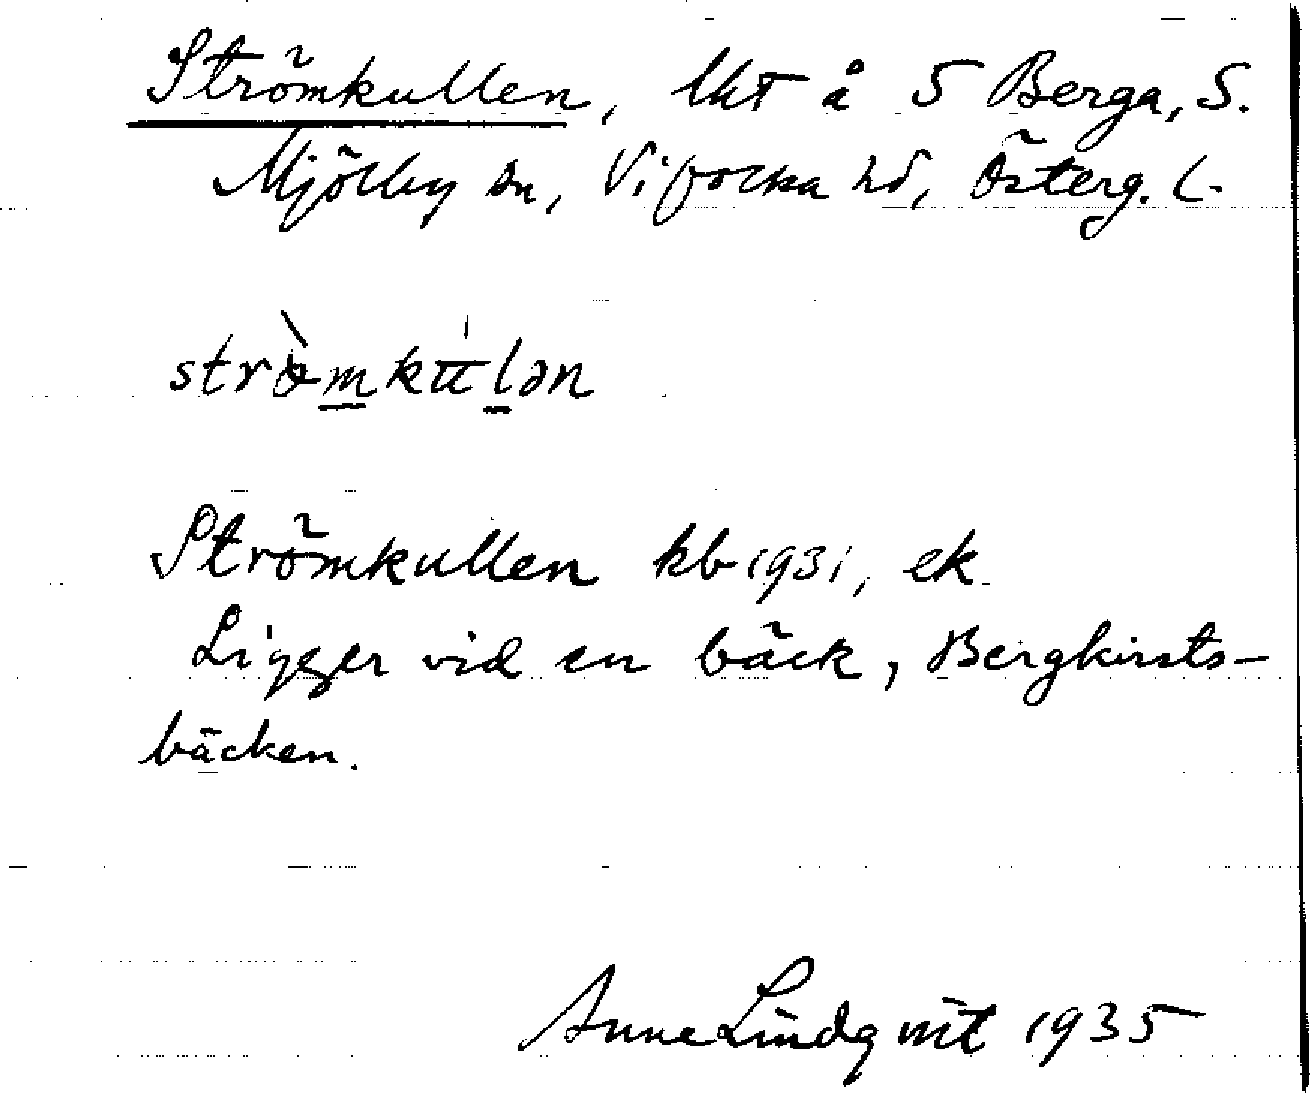 Strömkullen, lht å S Berga, S.
Mjölby sn, Vifolka hd, Österg. L.
strömkulən
Strömkullen kb 1931, ek.
Ligger vid en bäck, Bergkvists-
bäcken.
Anne Lindqvist 1935